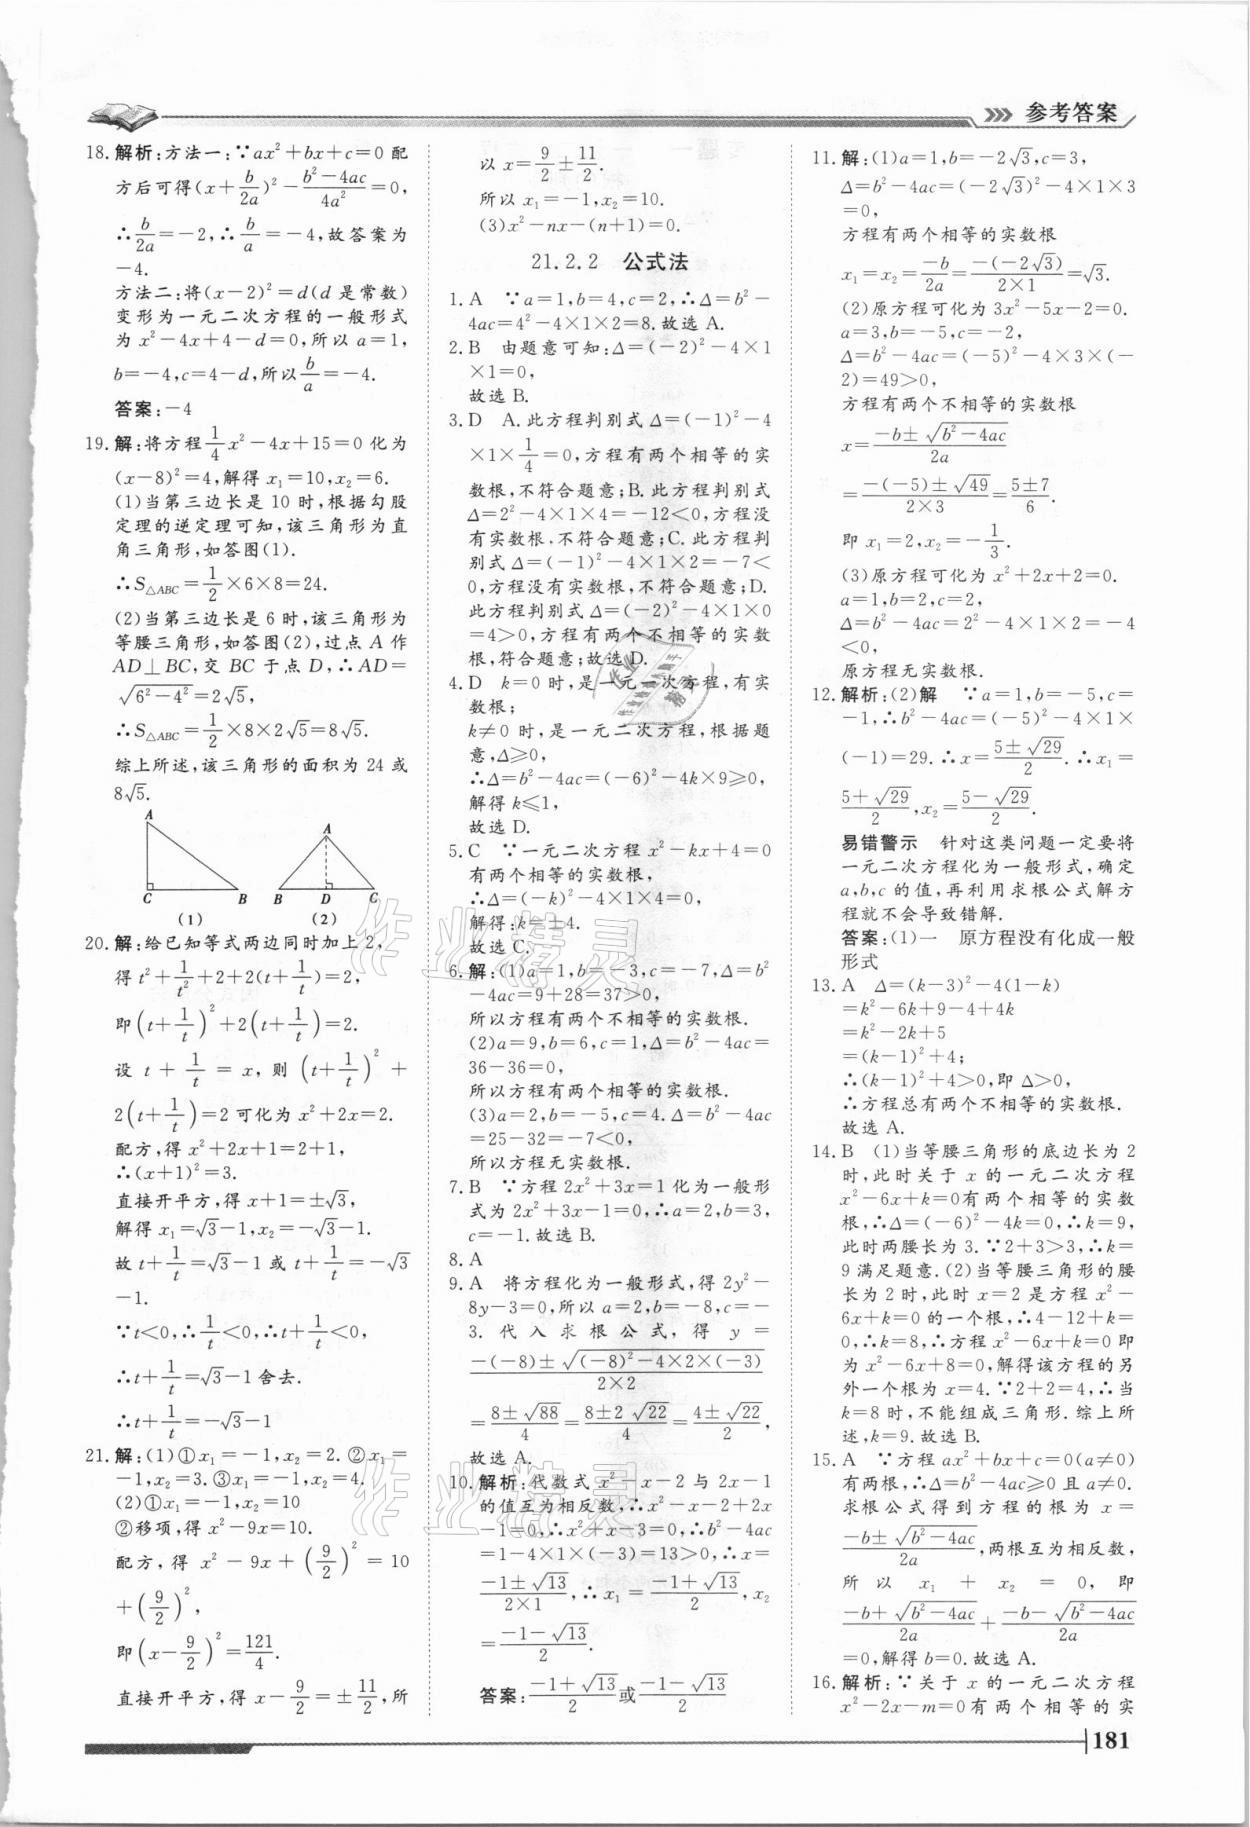 参考答案
18.解析:方法一:∵ax²+bx+c=0 配
方后可得(x+b/2a)²-(b²-4ac)/4a²=0,
∴b/2a=-2,∴b/a=-4,故答案为
-4.
方法二:将(x-2)²=d(d 是常数)
变形为一元二次方程的一般形式
为 x²-4x+4-d=0,所以 a=1,
b=-4,c=4-d,所以b/a=-4.
答案:-4
19.解:将方程1/4x²-4x+15=0 化为
(x-8)²=4,解得 x₁=10,x₂=6.
(1)当第三边长是 10 时,根据勾股
定理的逆定理可知,该三角形为直
角三角形,如答图(1).
∴S△ABC=1/2×6×8=24.
(2)当第三边长是 6 时,该三角形为
等腰三角形,如答图(2),过点 A 作
AD⊥BC,交 BC 于点 D,∴AD=
√(6²-4²)=2√5,
∴S△ABC=1/2×8×2√5=8√5.
综上所述,该三角形的面积为 24 或
8√5.
A
C B
(1)
A
B D C
(2)
20.解:给已知等式两边同时加上 2,
得 t²+1/t²+2+2(t+1/t)=2,
即(t+1/t)²+2(t+1/t)=2.
设 t+1/t=x,则(t+1/t)²+
2(t+1/t)=2 可化为 x²+2x=2.
配方,得 x²+2x+1=2+1,
∴(x+1)²=3.
直接开平方,得 x+1=±√3,
解得 x₁=√3-1,x₂=-√3-1.
故 t+1/t=√3-1 或 t+1/t=-√3
-1.
∵t<0,∴1/t<0,∴t+1/t<0,
∴t+1/t=√3-1 舍去.
∴t+1/t=-√3-1
21.解:(1)①x₁=-1,x₂=2.②x₁=
-1,x₂=3.③x₁=-1,x₂=4.
(2)①x₁=-1,x₂=10
②移项,得 x²-9x=10.
配方,得 x²-9x+(9/2)²=10
+(9/2)²,
即(x-9/2)²=121/4.
直接开平方,得 x-9/2=±11/2,所
以 x=9/2±11/2.
所以 x₁=-1,x₂=10.
(3)x²-nx-(n+1)=0.
21.2.2 公式法
1.A ∵a=1,b=4,c=2,∴Δ=b²-
4ac=4²-4×1×2=8.故选 A.
2.B 由题意可知:Δ=(-2)²-4×1
×1=0,
故选 B.
3.D A.此方程判别式 Δ=(-1)²-4
×1×1/4=0,方程有两个相等的实
数根,不符合题意;B.此方程判别式
Δ=2²-4×1×4=-12<0,方程没
有实数根,不符合题意;C.此方程判
别式 Δ=(-1)²-4×1×2=-7<
0,方程没有实数根,不符合题意;D.
此方程判别式 Δ=(-2)²-4×1×0
=4>0,方程有两个不相等的实数
根,符合题意;故选 D.
4.D k=0 时,是一元一次方程,有实
数根;
k≠0 时,是一元二次方程,根据题
意,Δ≥0,
∴Δ=b²-4ac=(-6)²-4k×9≥0,
解得 k≤1,
故选 D.
5.C ∵一元二次方程 x²-kx+4=0
有两个相等的实数根,
∴Δ=(-k)²-4×1×4=0,
解得:k=±4.
故选 C.
6.解:(1)a=1,b=-3,c=-7,Δ=b²
-4ac=9+28=37>0,
所以方程有两个不相等的实数根.
(2)a=9,b=6,c=1,Δ=b²-4ac=
36-36=0,
所以方程有两个相等的实数根.
(3)a=2,b=-5,c=4.Δ=b²-4ac
=25-32=-7<0,
所以方程无实数根.
7.B ∵方程 2x²+3x=1 化为一般形
式为 2x²+3x-1=0,∴a=2,b=3,
c=-1.故选 B.
8.A
9.A 将方程化为一般形式,得 2y²-
8y-3=0,所以 a=2,b=-8,c=-
3.代入求根公式,得 y=
(-(-8)±√((-8)²-4×2×(-3)))/(2×2)
=(8±√88)/4=(8±2√22)/4=(4±√22)/2.
故选 A.
10.解析:代数式 x²-x-2 与 2x-1
的值互为相反数,∴x²-x-2+2x
-1=0,∴x²+x-3=0,∴b²-4ac
=1-4×1×(-3)=13>0,∴x=
(-1±√13)/(2×1),∴x₁=(-1+√13)/2,x₂
=(-1-√13)/2.
答案:(-1+√13)/2或(-1-√13)/2
11.解:(1)a=1,b=-2√3,c=3,
Δ=b²-4ac=(-2√3)²-4×1×3
=0,
方程有两个相等的实数根
x₁=x₂=-b/2a=-(-2√3)/(2×1)=√3.
(2)原方程可化为 3x²-5x-2=0.
a=3,b=-5,c=-2,
Δ=b²-4ac=(-5)²-4×3×(-
2)=49>0,
方程有两个不相等的实数根
x=(-b±√(b²-4ac))/2a
=(-(-5)±√49)/(2×3)=(5±7)/6.
即 x₁=2,x₂=-1/3.
(3)原方程可化为 x²+2x+2=0.
a=1,b=2,c=2,
Δ=b²-4ac=2²-4×1×2=-4
<0,
原方程无实数根.
12.解析:(2)解 ∵a=1,b=-5,c=
-1,∴b²-4ac=(-5)²-4×1×
(-1)=29.∴x=(5±√29)/2.∴x₁=
(5+√29)/2,x₂=(5-√29)/2.
易错警示 针对这类问题一定要将
一元二次方程化为一般形式,确定
a,b,c 的值,再利用求根公式解方
程就不会导致错解.
答案:(1)一 原方程没有化成一般
形式
13.A Δ=(k-3)²-4(1-k)
=k²-6k+9-4+4k
=k²-2k+5
=(k-1)²+4;
∴(k-1)²+4>0,即 Δ>0,
∴方程总有两个不相等的实数根.
故选 A.
14.B (1)当等腰三角形的底边长为 2
时,此时关于 x 的一元二次方程
x²-6x+k=0有两个相等的实数
根,∴Δ=(-6)²-4k=0,∴k=9,
此时两腰长为 3.∵2+3>3,∴k=
9 满足题意.(2)当等腰三角形的腰
长为 2时,此时 x=2 是方程 x²-
6x+k=0 的一个根,∴4-12+k=
0,∴k=8,∴方程 x²-6x+k=0 即
为 x²-6x+8=0,解得该方程的另
外一个根为 x=4.∵2+2=4,∴当
k=8时,不能组成三角形.综上所
述,k=9.故选 B.
15.A ∵方程 ax²+bx+c=0(a≠0)
有两根,∴Δ=b²-4ac≥0 且 a≠0.
求根公式得到方程的根为 x=
(-b±√(b²-4ac))/2a,两根互为相反数,
所以 x₁+x₂=0,即
(-b+√(b²-4ac))/2a+(-b-√(b²-4ac))/2a
=0,解得 b=0.故选 A.
16.解析:∵关于 x 的一元二次方程
x²-2x-m=0有两个相等的实
181
作业精灵
作业精灵